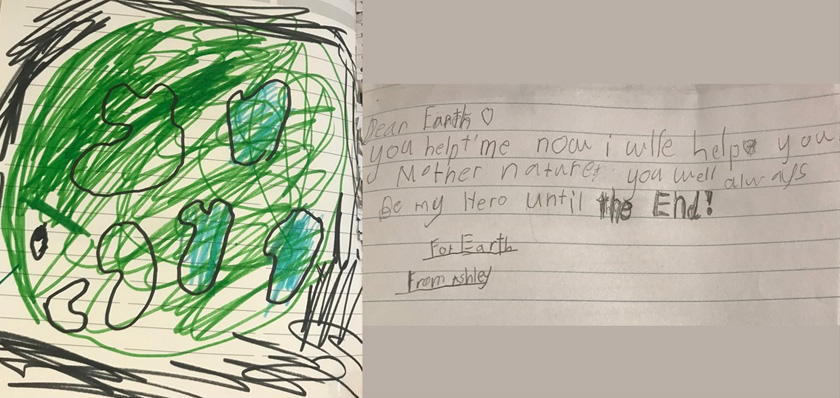 Dear Earth ♡
you help't me now i wille help you
Mother nature, you well always
Be my Hero until the End!
For Earth
From Ashley